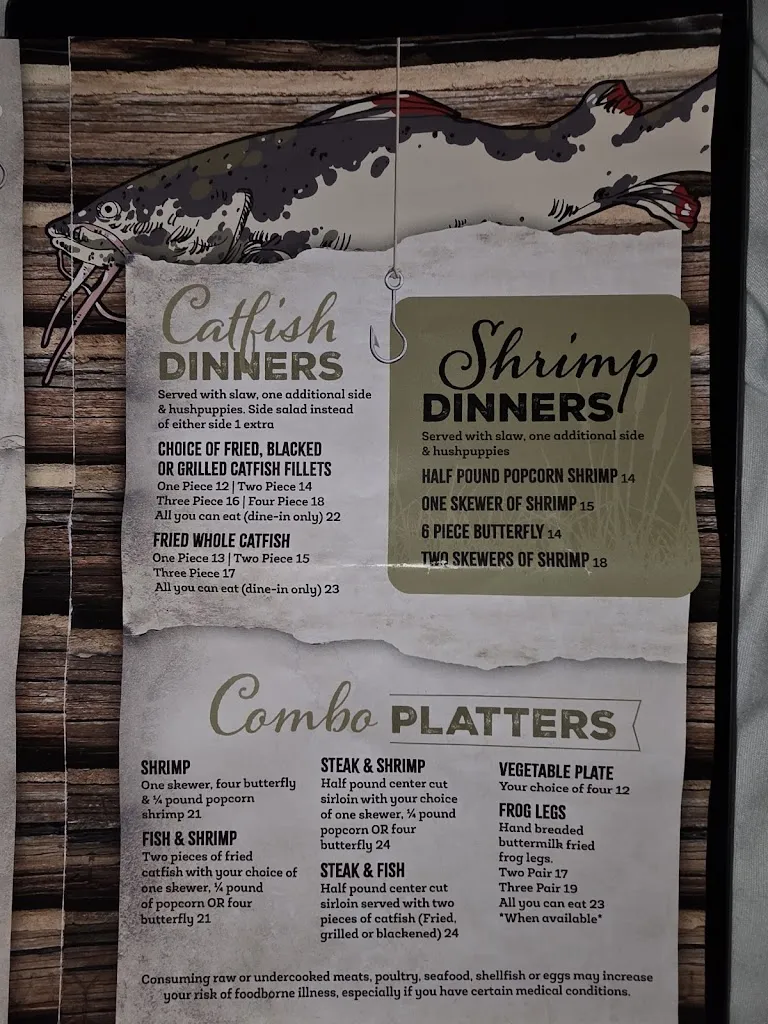 Catfish
DINNERS
Served with slaw, one additional side
& hushpuppies. Side salad instead
of either side 1 extra
CHOICE OF FRIED, BLACKED
OR GRILLED CATFISH FILLETS
One Piece 12 | Two Piece 14
Three Piece 16 | Four Piece 18
All you can eat (dine-in only) 22
FRIED WHOLE CATFISH
One Piece 13 | Two Piece 15
Three Piece 17
All you can eat (dine-in only) 23
Shrimp
DINNERS
Served with slaw, one additional side
& hushpuppies
HALF POUND POPCORN SHRIMP 14
ONE SKEWER OF SHRIMP 15
6 PIECE BUTTERFLY 14
TWO SKEWERS OF SHRIMP 18
Combo PLATTERS
SHRIMP
One skewer, four butterfly
& ¼ pound popcorn
shrimp 21
FISH & SHRIMP
Two pieces of fried
catfish with your choice of
one skewer, ¼ pound
of popcorn OR four
butterfly 21
STEAK & SHRIMP
Half pound center cut
sirloin with your choice
of one skewer, ¼ pound
popcorn OR four
butterfly 24
STEAK & FISH
Half pound center cut
sirloin served with two
pieces of catfish (Fried,
grilled or blackened) 24
VEGETABLE PLATE
Your choice of four 12
FROG LEGS
Hand breaded
buttermilk fried
frog legs.
Two Pair 17
Three Pair 19
All you can eat 23
*When available*
Consuming raw or undercooked meats, poultry, seafood, shellfish or eggs may increase
your risk of foodborne illness, especially if you have certain medical conditions.